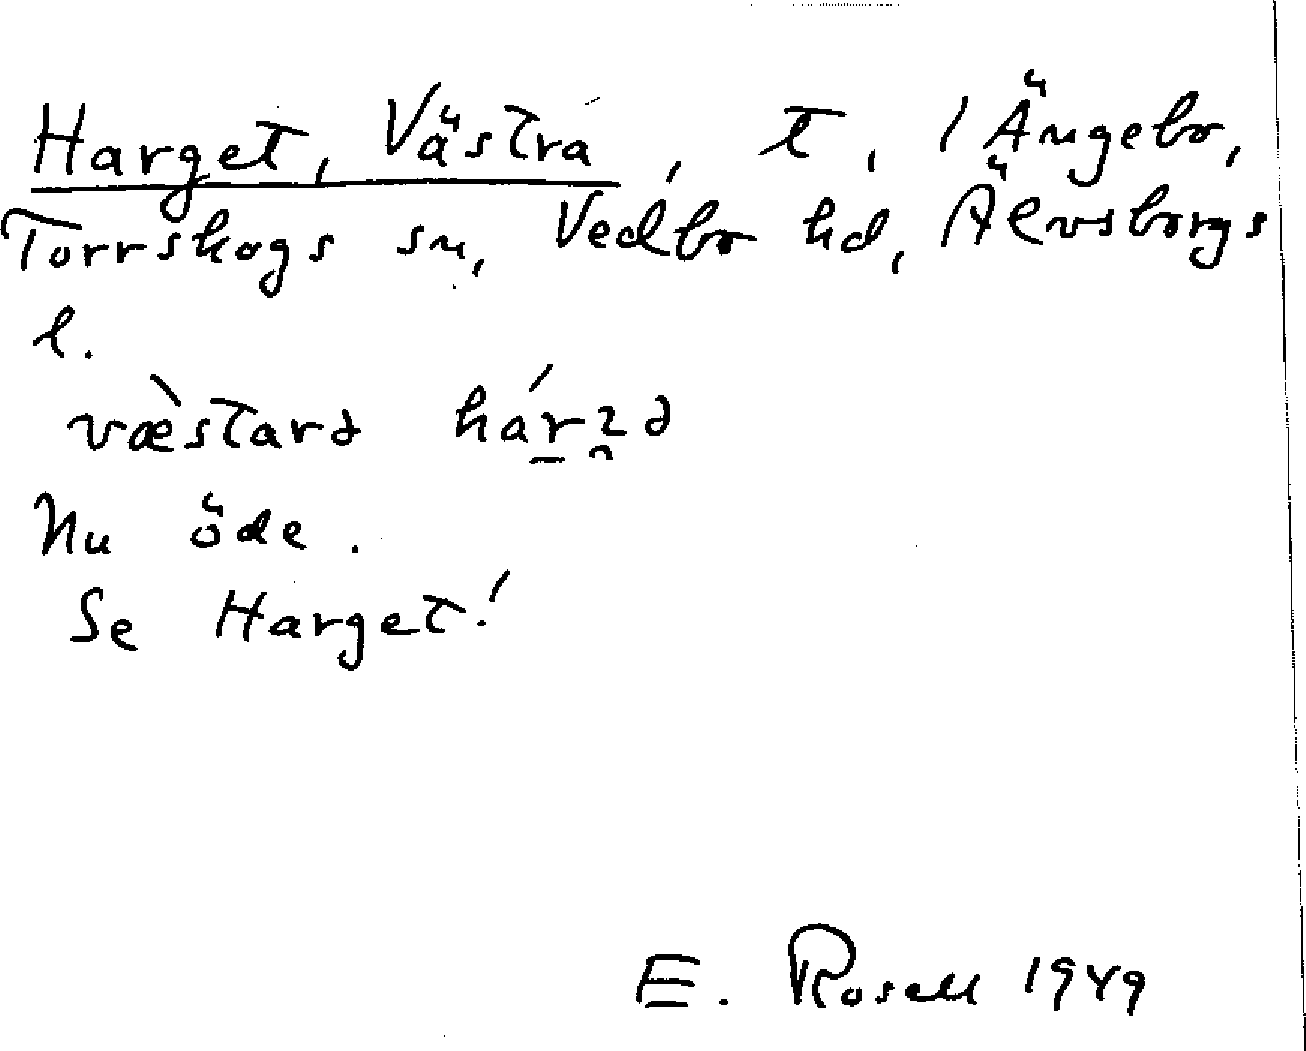 Harget, Västra, t, 1 Ängebo,
Torrskogs sn, Vedbo hd, Älvsborgs
l.
væ̀starə hárgə
Nu öde.
Se Harget!
E. Rosell 1949